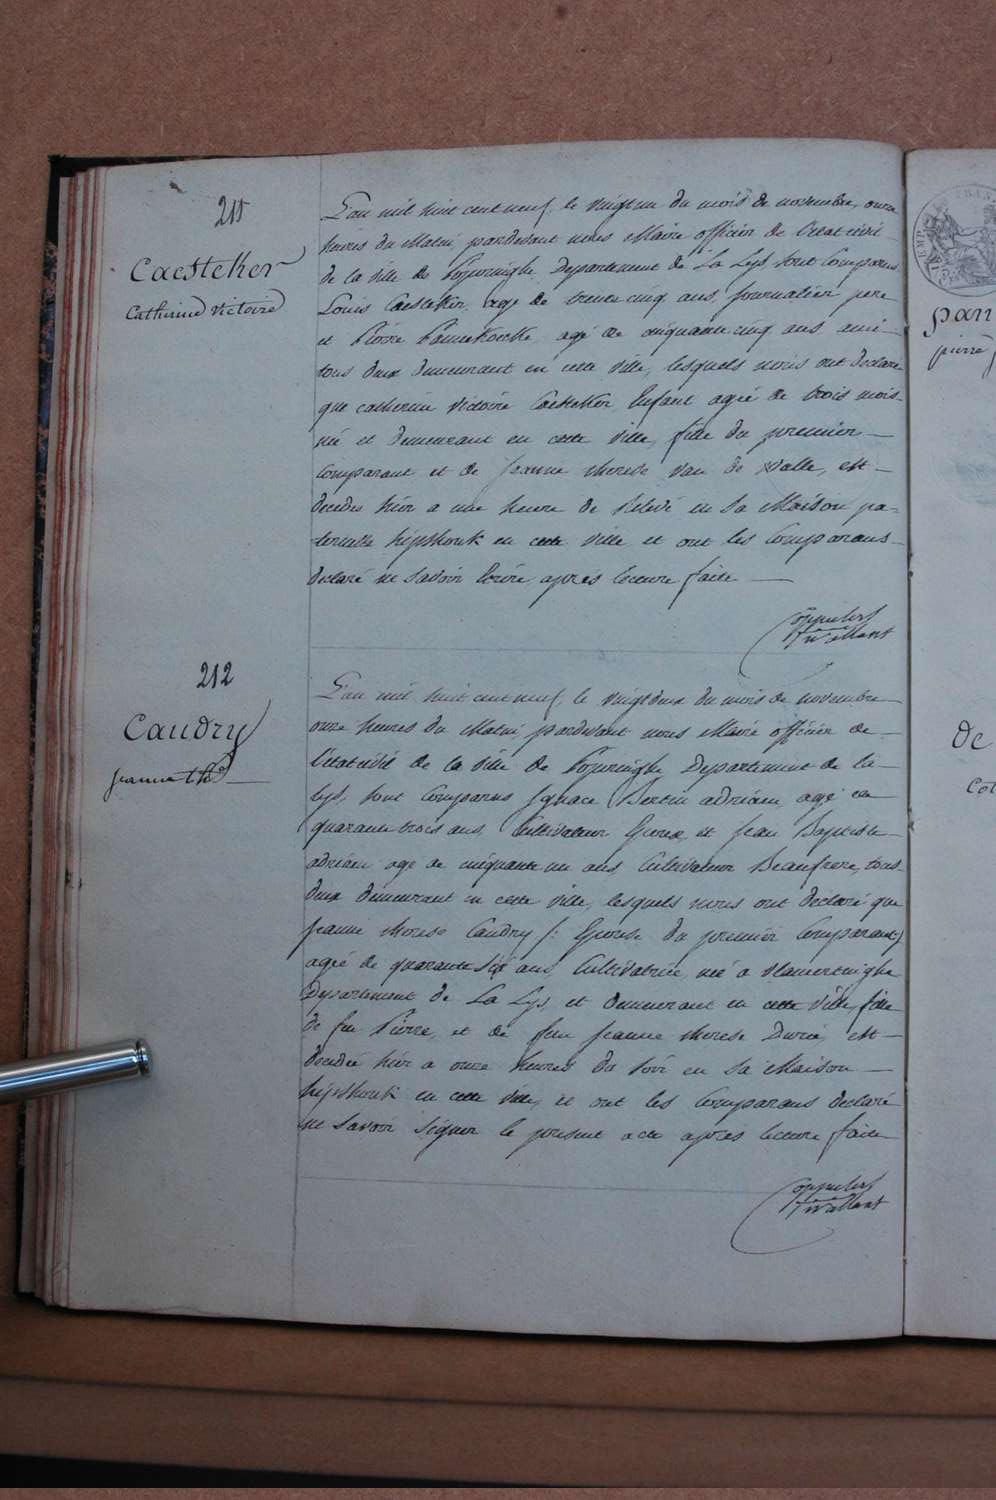 211
Caesteker
Catherine Victoire
L'an mil huit cent neuf, le vingt un du mois de novembre, onze
heures du Matin, pardevant nous Maire officier de l'état civil
de la ville de Poperinghe, Departement de La Lys sont Comparus
Louis Caesteker, agé de trente cinq ans, journalier pere
et Pierre Pannekoucke, agé de cinquante cinq ans ami
tous deux demeurant en cette ville, lesquels nous ont declaré
que catherine Victoire Caesteker Enfant agée de trois mois
née et demeurant en cette ville, fille du premier
Comparant et de Jeanne therese Van de Walle, est
decedée hier a une heure de relevé en sa Maison pa=
ternelle en cette ville et ont les Comparans
declaré ne savoir Ecrire, après lecture faite
212
Caudry
Jeanne thé
L'an mil huit cent neuf, le vingt deux du mois de novembre
onze heures du Matin, pardevant nous Maire officier de
l'état civil de la ville de Poperinghe Departement de la
Lys, sont Comparus Ignace Bertin adriaen agé de
quarante trois ans, Cultivateur Epoux, et Jean Baptiste
adriaen agé de cinquante un ans Cultivateur Beaufrere, tous
deux demeurant en cette ville, lesquels nous ont declaré que
Jeanne therese Caudry /: Epouse du premier Comparant/
agée de quarante six ans, Cultivatrice, née a vlamertinghe
Departement de La Lys, et demeurant en cette ville, fille
de feu Pierre, et de feue Jeanne therese est
decedée hier a onze heures du soir en sa Maison
en cette ville, et ont les Comparans declaré
ne savoir signer le present acte après lecture faite
pan
pierre
de